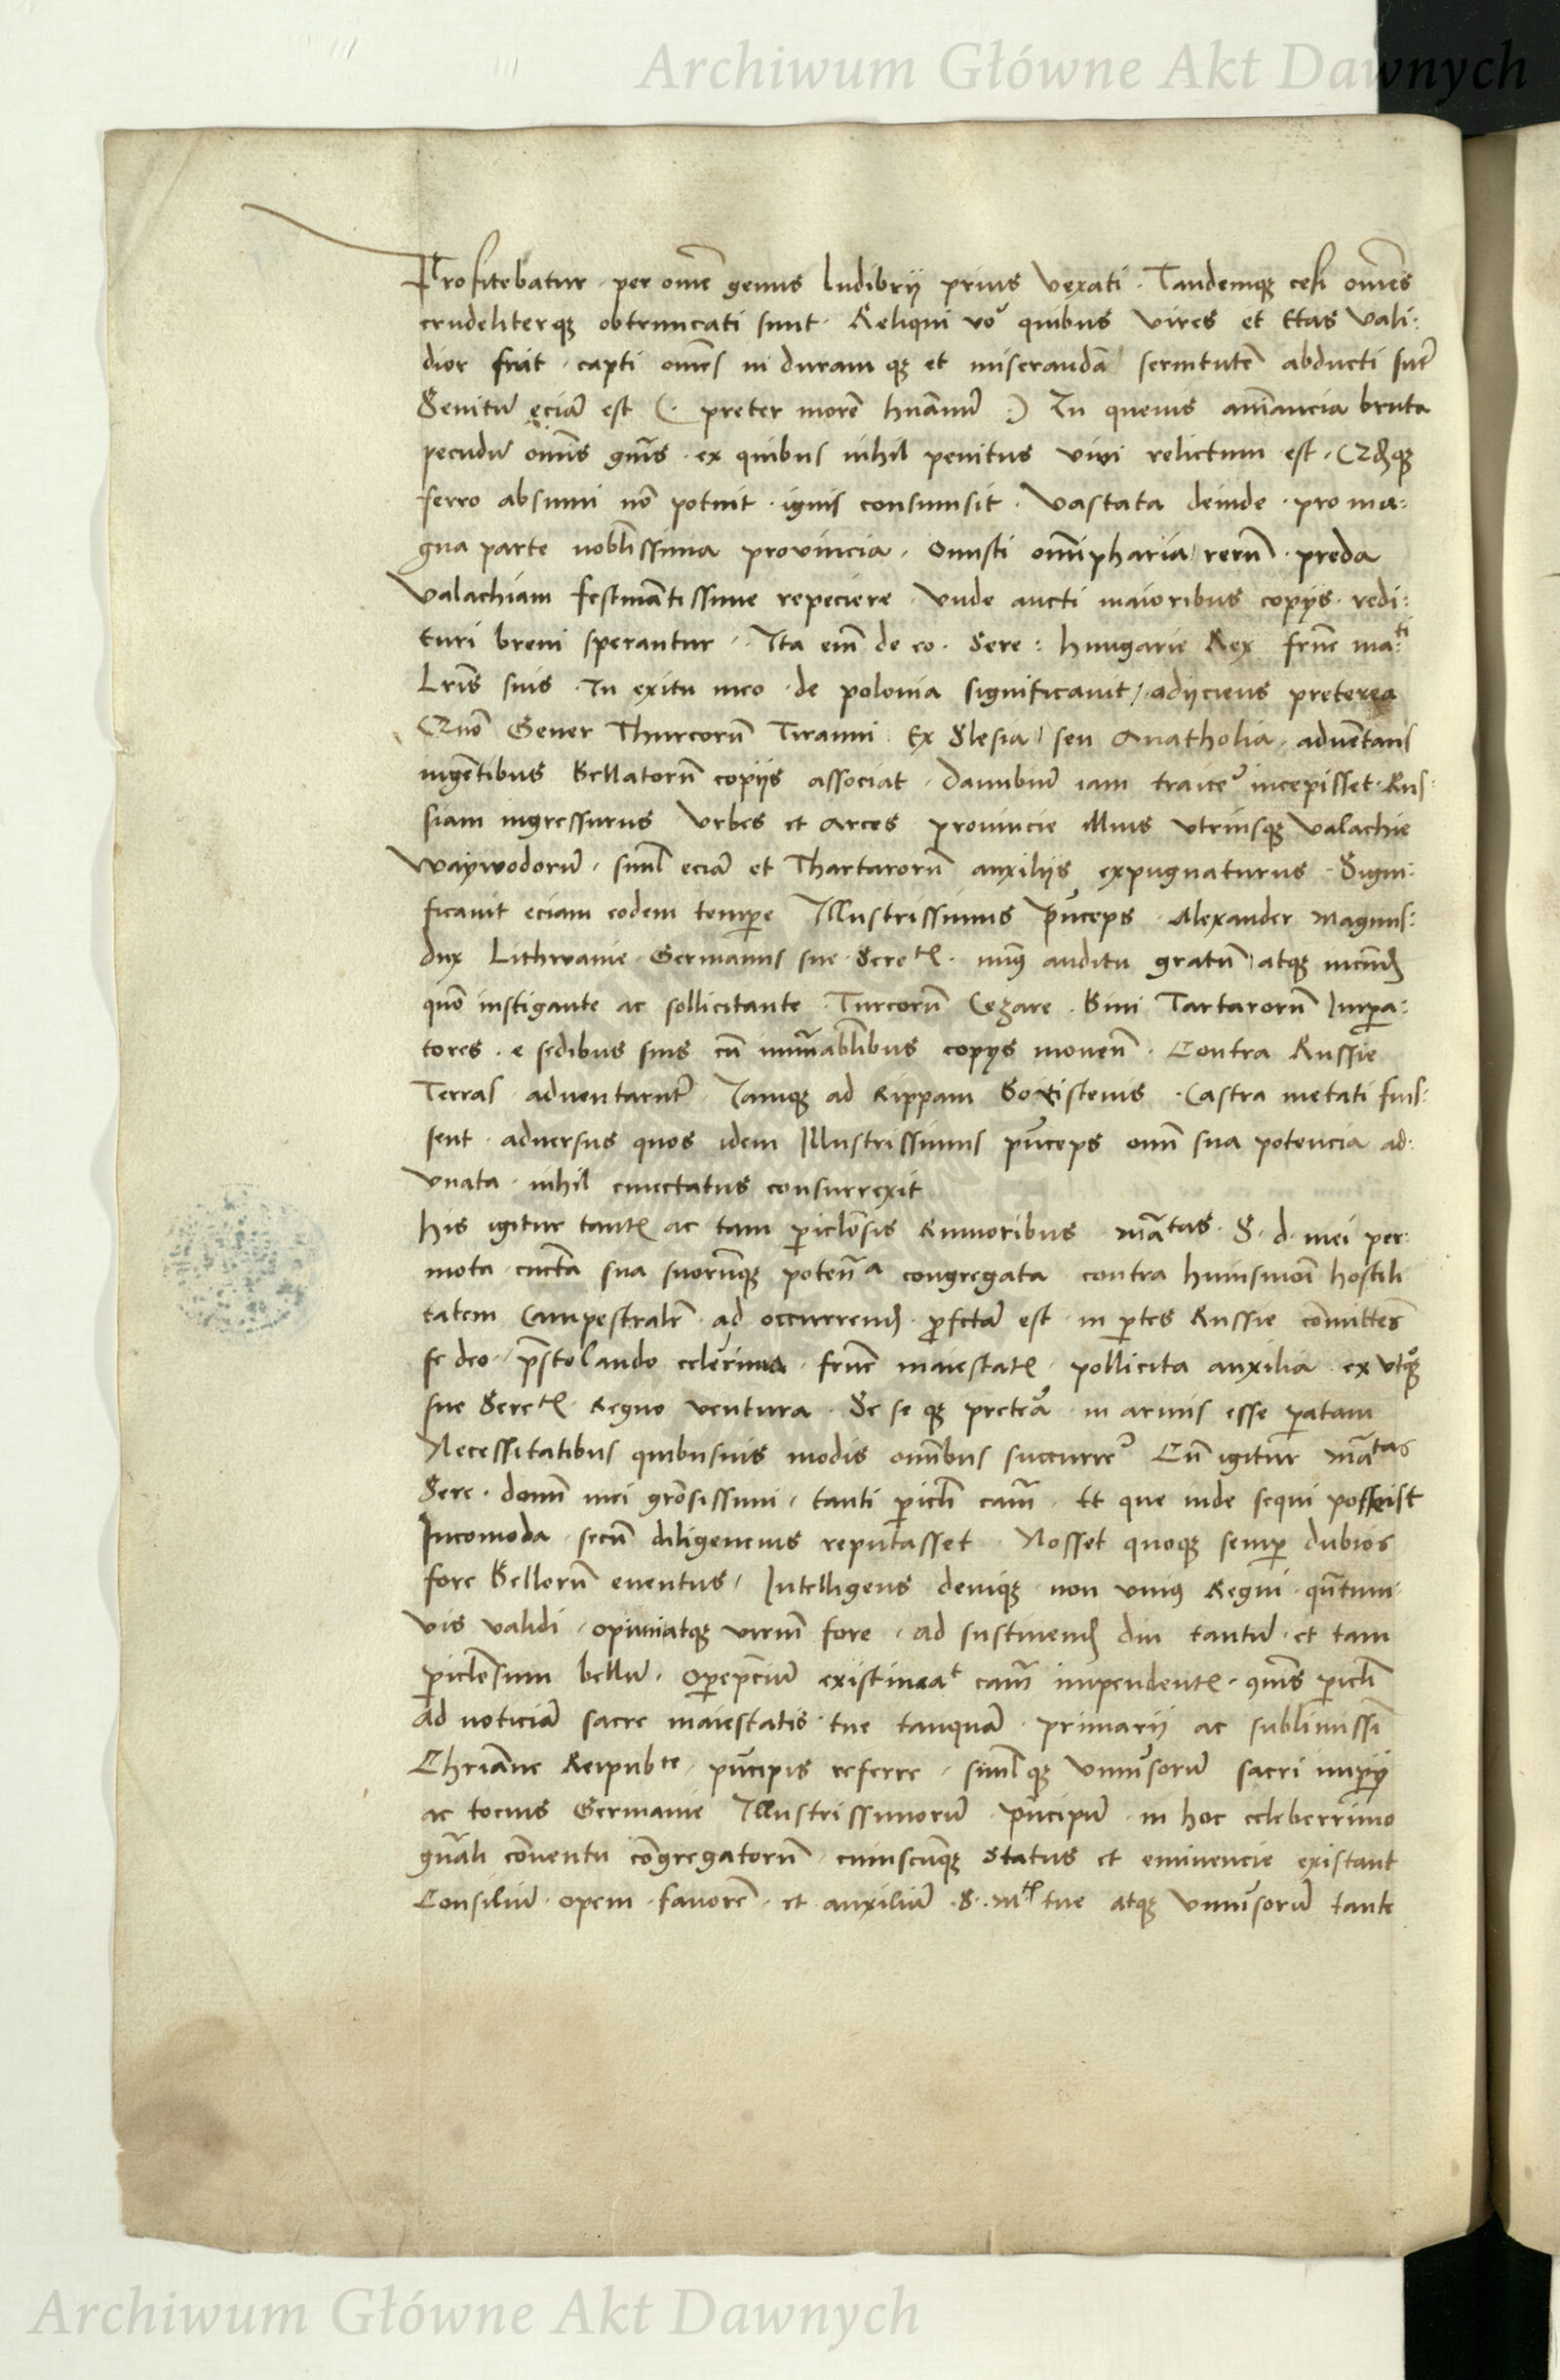 Archiwum Główne Akt Dawnych
Profitebatur · per omē genus ludibrij prius vexati · Tandemqꝫ cesi omēs
crudeliterqꝫ obtruncati sunt · Reliqui vo᷒ quibus vires et Etas vali:
dior fuit · capti omēs in duram qꝫ et miserandā seruitutē abducti sūt
Seuitū eciā est (· preter morē humanū :) In queuis animancia bruta
pecudū omīs gn̄is · ex quibus nihil penitus viui relictum est · Qd̄qꝫ
ferro absumi nō potuit · ignis consumsit · Vastata deinde · pro ma:
gna parte nobilissima prouincia · Onusti omīpharia rerū · preda
Valachiam festinātissime repeciere · Vnde aucti maioribus copijs · redi:
turi breui sperantur · Ita em̄ de eo · Sere: hungarie Rex frn̄e ma:ti
Lr̄is suis · In exitu meo · de polonia significauit / adijciens preterea
Quō Gener Thurcorū Tiranni Ex Slesia seu Anatholia · aduētans
ingētibus Bellatorū copijs associat · danubiū iam traice᷒ incepisset · Rus:
siam ingressurus Vrbes et Arces prouincie illius vtriusqꝫ Valachie
Waywodorū · siml̄ eciā et Thartarorū auxilijs expugnaturus · Signi:
ficauit eciam eodem tempe Illustrissimus pn̄ceps · Alexander magnus:
dux Lithwanie · Germanus sue Sere tꝭ · minꝰ auditu gratū atqꝫ iucūd
quō instigante ac sollicitante Turcorū Cezare · Bini Tartarorū Impa:
tores · e sedibus suis cū innūabilibus copijs mouen̄ · Contra Russie
Terras aduentarūt · Iamqꝫ ad Rippam Boristenis · Castra metati fuis:
sent · aduersus quos idem Illustrissimus pn̄ceps omī sua potencia ad:
vnata · nihil cunctatus consurrexit
his igitur tantꝭ ac tam piclōsis Rumoribus mātas · S · d · mei per:
mota · cūcta sua suorūqꝫ poten̄a congregata contra huiusmōi hostili
tatem Campestralē · ad occurrend · pfctā est · in ptes Russie cōmittēs
se deo · p̄stolando celerima · frn̄e maiestatꝭ · pollicita auxilia · ex vtqꝫ
sue Sere tꝭ Regno ventura · Se se qꝫ preteā · in armis esse patam
Necessitatibus quibusuis modis omībus succurre᷒ Cū igitur mātas
Sere · domī mei grōsissimi · tanti picl̄i cam̄ · Et que inde sequi possēt
Incomoda · secū diligencius reputasset · Nosset quoqꝫ semp dubios
fore Bellorū euentus / Intelligens deniqꝫ non vniꝰ Regni · qn̄tum:
vis validi · opimiatqꝫ viriū fore · ad sustinend diu tantū · et tam
piclōsum bellū · opep̄ciū existimat cam̄ impendentꝭ · picl̄i
Ad noticiā sacre maiestatis tue tanquā · primarij ac sublimissi
Chriāne Reipubce · pn̄cipis referre · siml̄qꝫ Vniu᷒sorū sacri impij
ac tocius Germanie Illustrissimorū pn̄cipū · in hoc celeberrimo
gn̄ali cōuentu cōgregatorū cuiuscūqꝫ status et eminencie existant
Consiliū · opem · fauorē · et auxiliū · S · Mtꝭ tue atqꝫ Vniu᷒sorū tante
Archiwum Główne Akt Dawnych